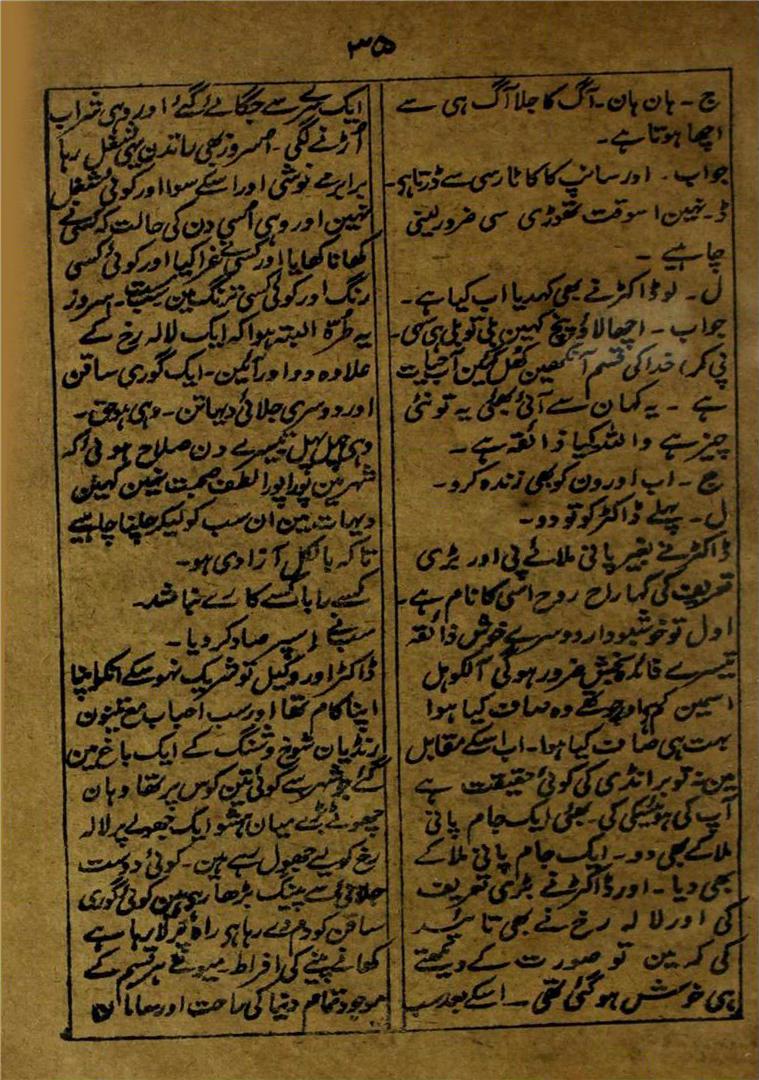 ۳۵
ج ۔ ہان ہان ۔ آگ کا جلا آگ ہی سے
اچھا ہوتا ہے ۔
جواب ۔ اور سانپ کا کاٹا رسی سے ڈرتا ہی ۔
ڈ ۔ نہین اسوقت تھوڑی سی ضرور پینی
چاہیے ۔
ل ۔ لو ڈاکٹر نے بھی کہدیا اب کیا ہے ۔
جواب ۔ اچھا لاؤ ہیچ کہین پلی تو پلی ہی سہی ۔
(پی کر) خدا کی قسم آنکھین کھل گئین آب حیات
ہے ۔ یہ کہان سے آئی بھئی یہ تو نئی
چیز ہے واللہ کیا ذائقہ ہے ۔
ج ۔ اب اورون کو بھی زندہ کرو ۔
ل ۔ پہلے ڈاکٹر کو تو دو ۔
ڈاکٹر نے بغیر پانی ملائے پی اور بڑی
تعریف کی کہا راح روح اسی کا نام ہے ۔
اول تو خوشبودار دوسرے خوش ذائقہ
تیسرے فائدہ بخش ضرور ہوگی آلکوہل
اسمین کم ہے اور جتنی ہے وہ صاف کیا ہوا
بہت ہی صاف کیا ہوا ۔ اب اسکے مقابل
مین نہ تو برانڈی کی کوئی حقیقت ہے
آپ کی ہوئسکی کی ۔ بھئی ایک جام پانی
ملا کے بھی دو ۔ ایک جام پانی ملا کے
بھی دیا ۔ اور ڈاکٹر نے بڑی تعریف
کی اور لالہ رخ نے بھی تائید
کی کہ مین تو صورت کے دیکھتے
ہی خوش ہوگئی تھی ۔ اسکے بعد سب
ایک سرے سے جگائے گئے اور وہی شراب
اُڑنے لگی ۔ اسروز بھی راتدن یہی شغل رہا
برابر مے نوشی اور اسکے سوا اور کوئی شغل
نہین اور وہی اُسی دن کی حالت کہ کسی نے
کھانا کھایا اور کسی نے غرا کیا اور کوئی کسی
رنگ اور کوئی کسی ترنگ مین مست ۔ اسروز
یہ طُرّہ البتہ ہوا کہ ایک لالہ رخ کے
علاوہ دو اور آئین ۔ ایک گوری ساقن
اور دوسری جلائی دیہاتن ۔ وہی ہو حق ۔
وہی چہل پہل تیسرے دن صلاح ہوئی کہ
شہر مین پورا پورا لطف صحبت نہین کہین
دیہات مین ان سب کو لیکر چلنا چاہیے
تاکہ بالکل آزادی ہو ۔
کسے را با کسے کارے نباشد ۔
سب نے اسپر صاد کر دیا ۔
ڈاکٹر اور وکیل تو شریک نہوسکے انکو اپنا
اپنا کام تھا اور سب احباب مع تینون
رنڈیان شوخ و شنگ کے ایک باغ مین
گئے جو شہر سے کوئی تین کوس پر تھا وہان
چھوٹے بڑے میان ہشو ایک جھولے پر لالہ
رخ کو لیے جھول رہے ہین ۔ کوئی دوست
جلائی سے پینگ بڑھا رہے ہین کوئی گوری
ساقن کو دم دے رہا ہی راہ پر لا رہا ہے
کھانے پینے کی افراط میوے ہر قسم کے
موجود تمام دنیا کی راحت اور سامان